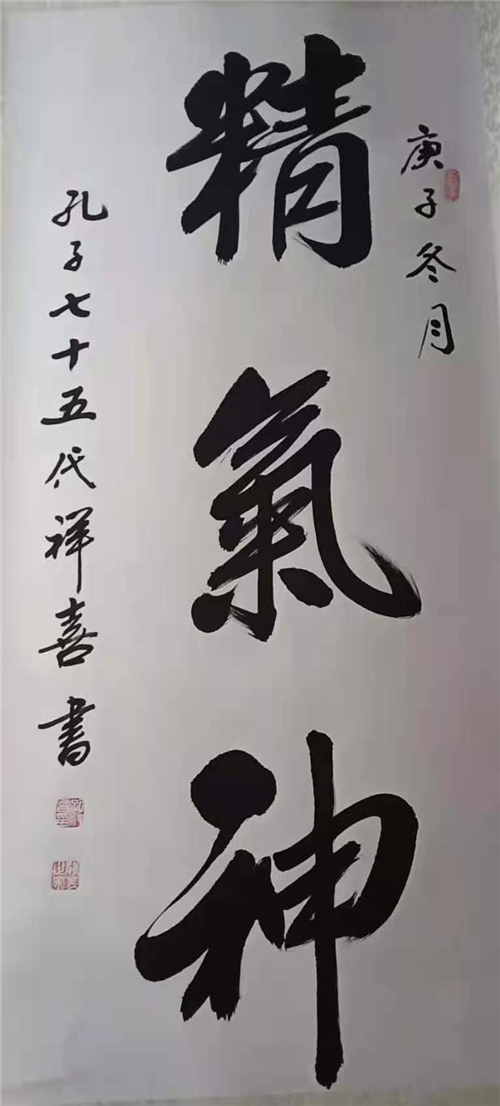 庚子冬月
精氣神
孔子七十五代祥喜書